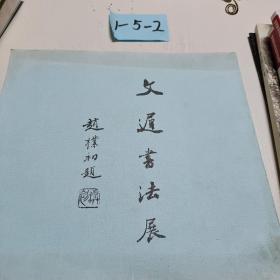 1-5-2
文遲書法展
趙樸初題